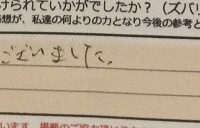 けられていかがでしたか？（ズバリ
想が、私達の何よりの力となり今後の参考と
ございました。
います。掲載のご協力